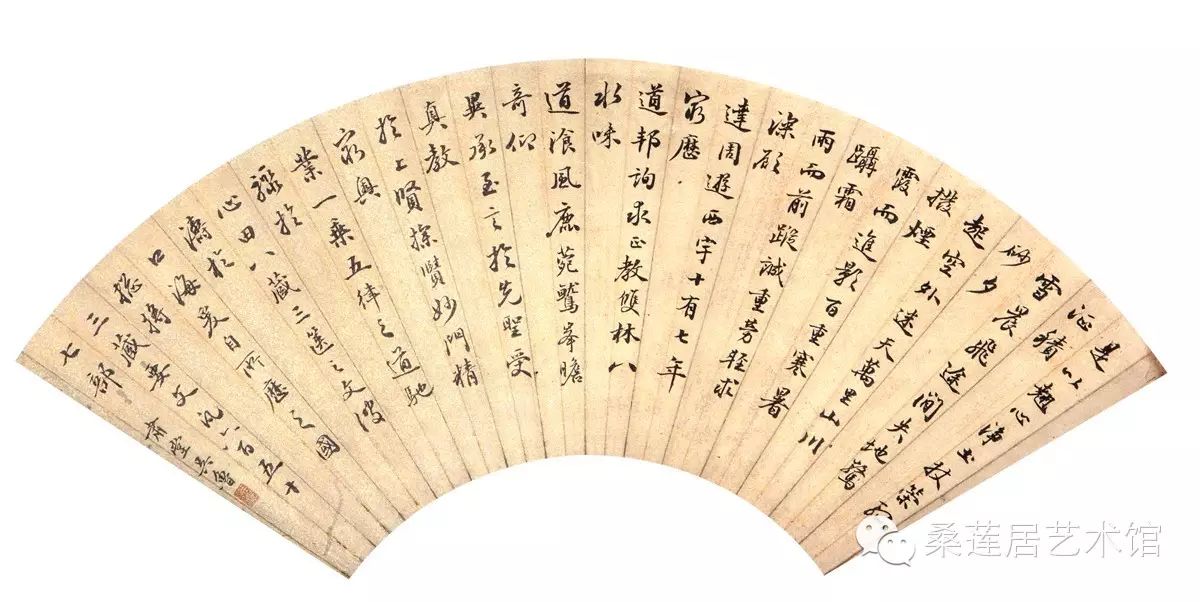 是以翹心淨土杖策孤
征積
雪晨飛途間失地驚
砂夕
起空外迷天萬里山川
撥煙
霞而進影百重寒暑
躡霜
雨而前蹤誠重勞輕求
深願
達周遊西宇十有七年
窮歷
道邦詢求正教雙林八
水味
道飡風鹿苑鷲峯瞻
奇仰
異承至言於先聖受
真教
於上賢探賾妙門精
窮奧
業一乘五律之道馳
驟於
心田八藏三篋之文波
濤於
口海爰自所歷之國
總將
三藏要文凡六百五十
七部
肅堂
桑莲居艺术馆